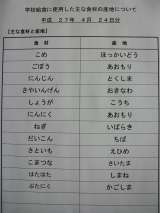 学校給食に使用した主な食材の産地について
平成 27年 4月 24日分
【主な食材と産地】
食材 産地
こめ ほっかいどう
ごぼう あおもり
にんじん とくしま
さやいんげん おきなわ
しょうが こうち
にんにく あおもり
ねぎ いばらき
だいこん ちば
きちい えひめ
こまつな さいたま
はたはた しまね
ぶたにく かごしま